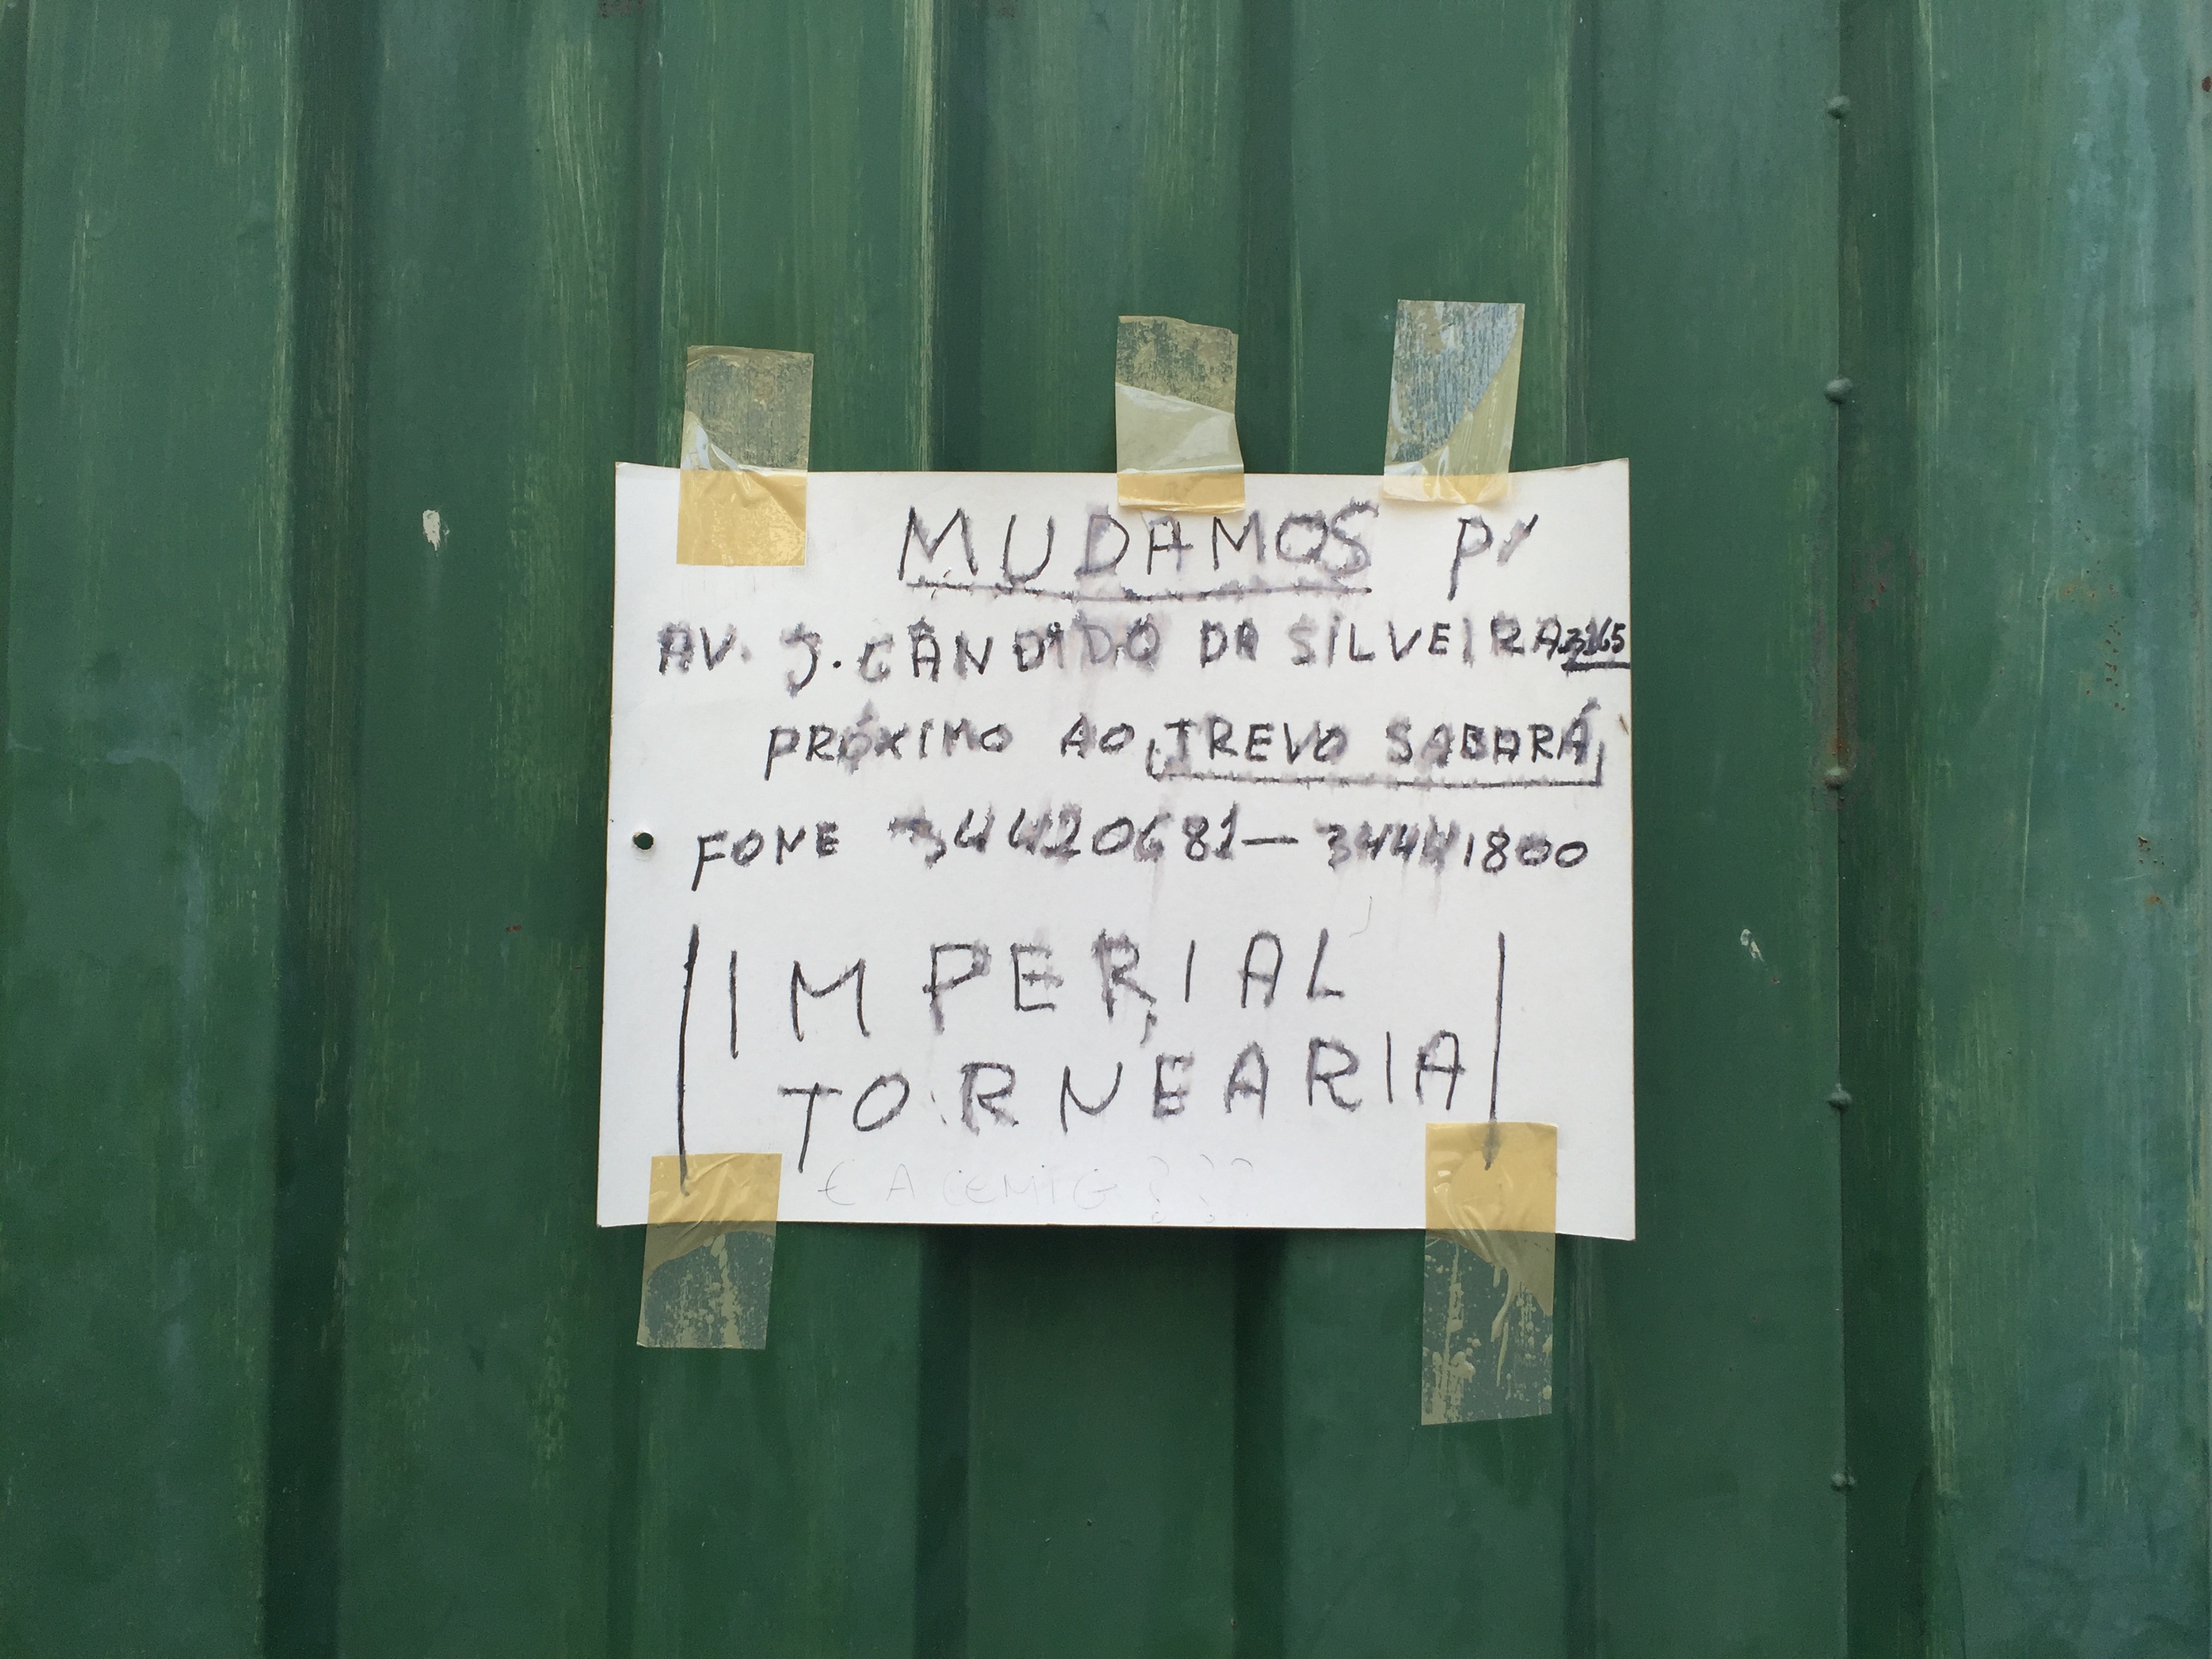 MUDAMOS P/
AV. J. CÂNDIDO DA SILVEIRA 3165
PRÓXIMO AO TREVO SABARÁ
FONE 34420681 — 34441800
IMPERIAL
TORNEARIA
E A CEMIG ???